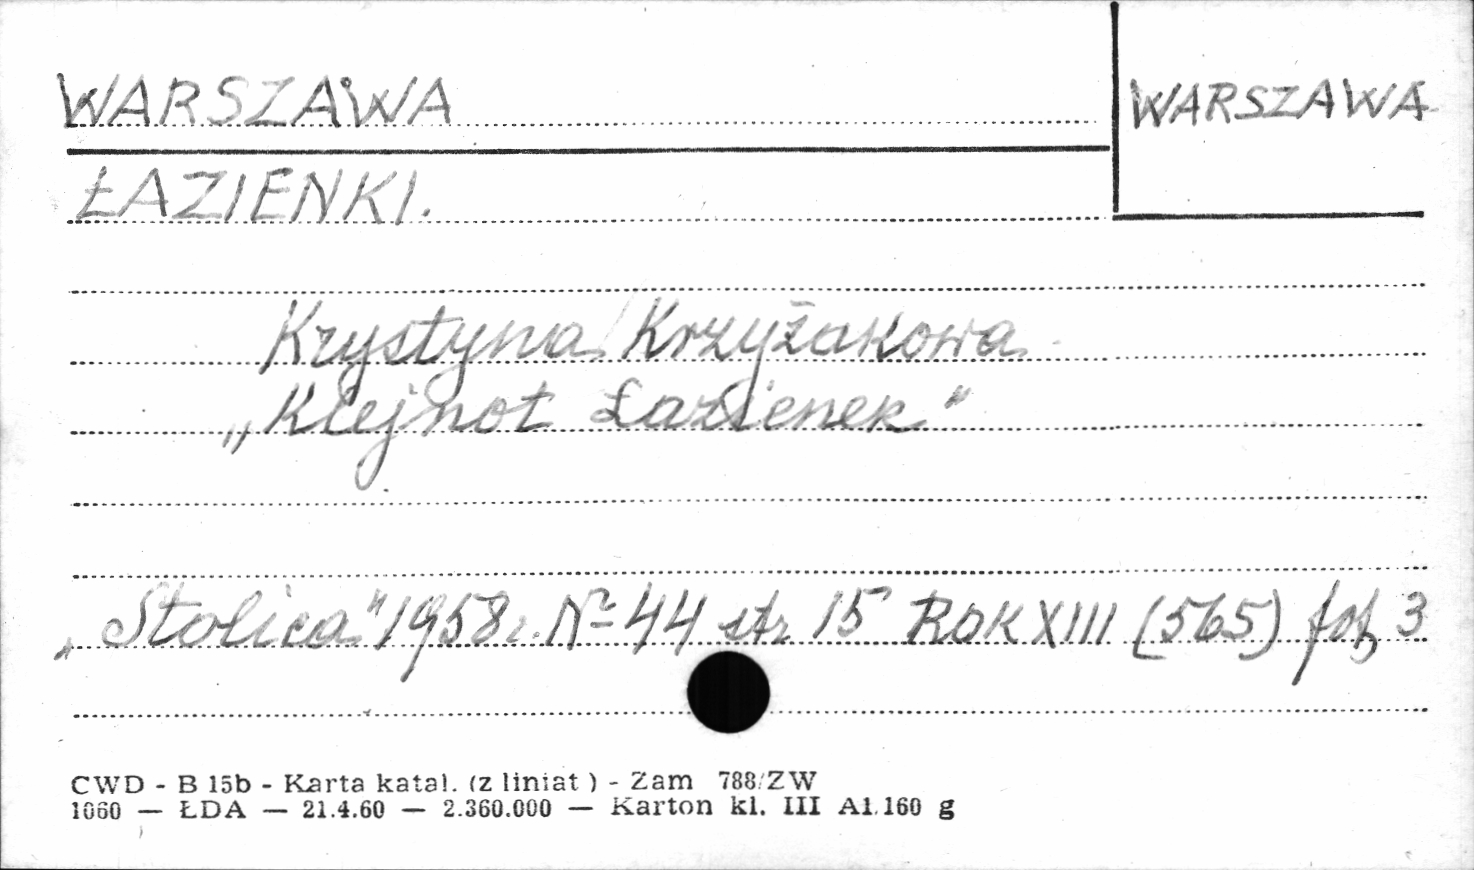 WARSZAWA
WARSZAWA
ŁAZIENKI.
Krystyna Krzyżakowa
„Klejnot Łazienek"
„Stolica" 1958 r. № 44 str 15 Rok XIII (565) fot 3
CWD - B 15b - Karta katal. (z liniat ) - Zam 788/ZW
1060 — ŁDA — 21.4.60 — 2.360.000 — Karton kl. III A1.160 g